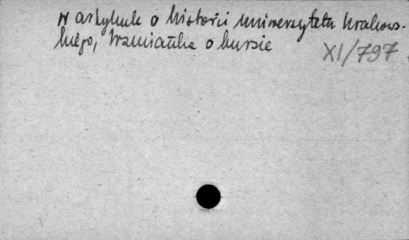 w artykule o historii uniwersytetu krakows-
kiego, wzmianka o bursie
XI/797